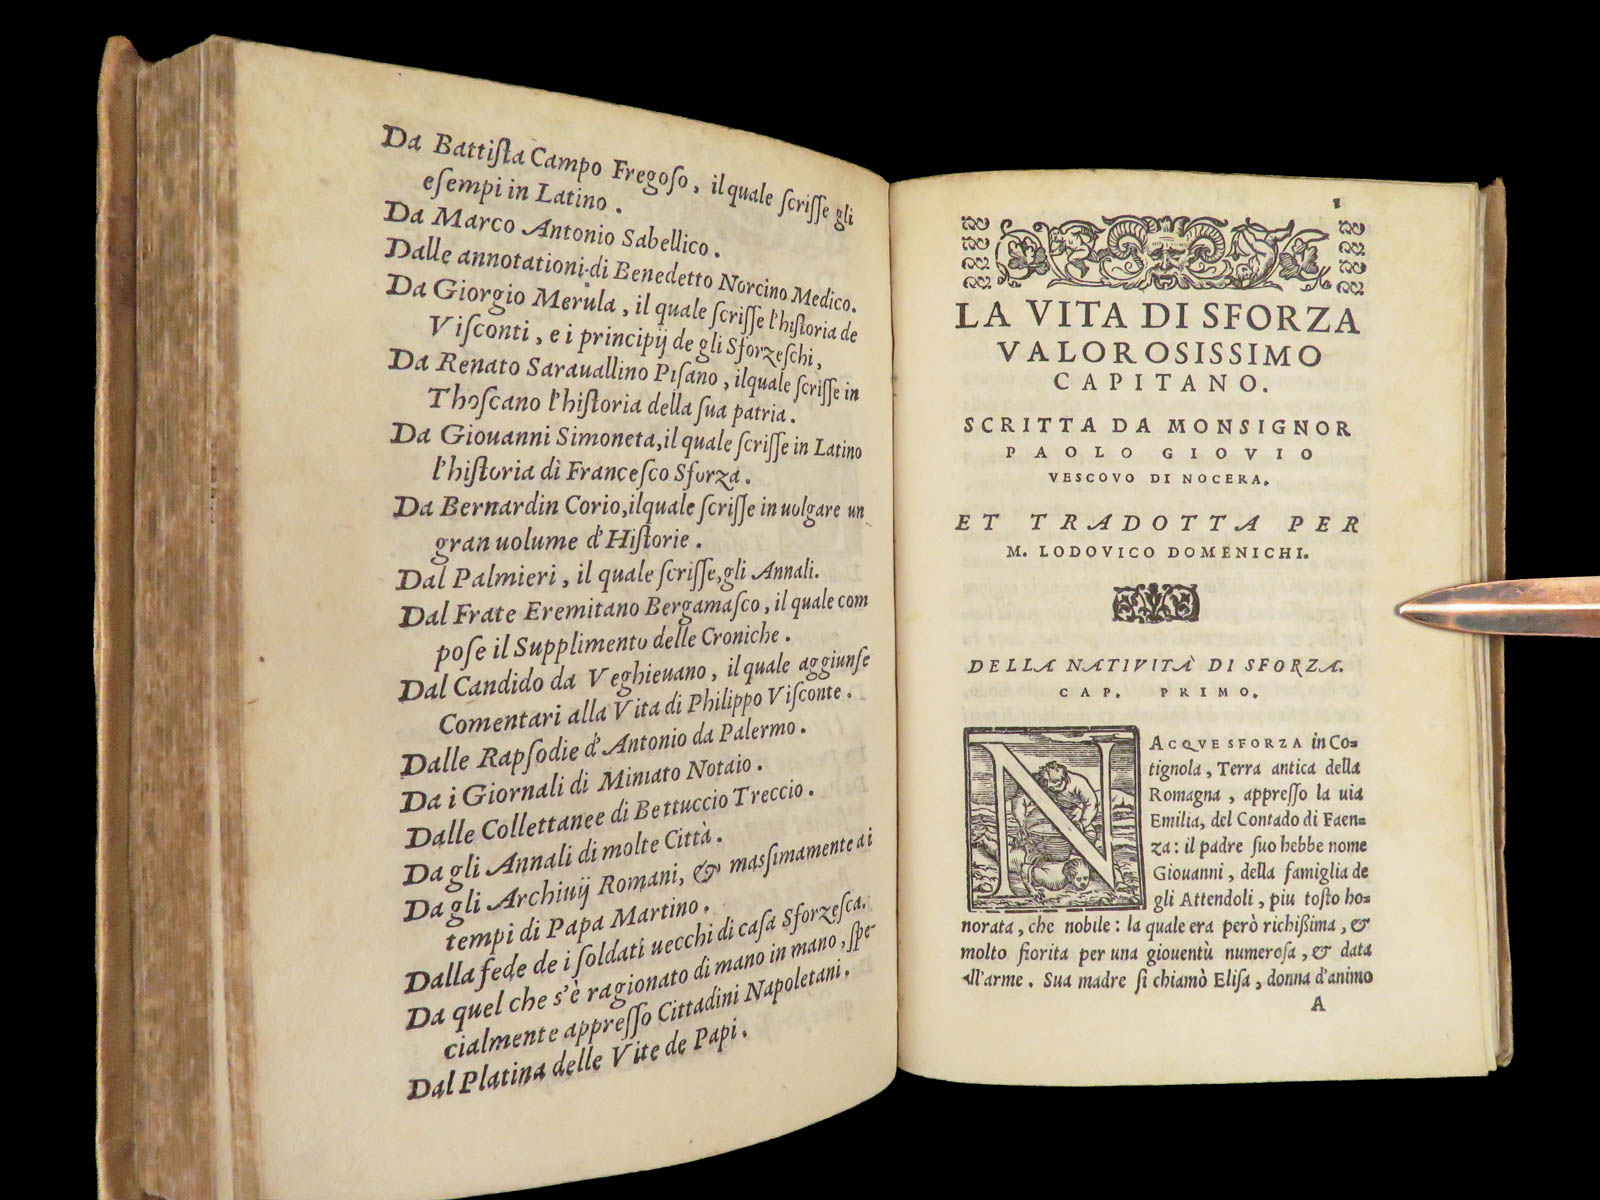 Da Battiſta Campo Fregoſo, il quale ſcriſſe gli
eſempi in Latino.
Da Marco Antonio Sabellico.
Dalle annotationi di Benedetto Norcino Medico.
Da Giorgio Merula, il quale ſcriſſe l'hiſtoria de
Viſconti, e i principij de gli Sforzeſchi,
Da Renato Sarauallino Piſano, ilquale ſcriſſe in
Thoſcano l'hiſtoria della ſua patria.
Da Giouanni Simoneta, il quale ſcriſſe in Latino
l'hiſtoria di Franceſco Sforza.
Da Bernardin Corio, ilquale ſcriſſe in uolgare un
gran uolume d'Hiſtorie.
Dal Palmieri, il quale ſcriſſe, gli Annali.
Dal Frate Eremitano Bergamaſco, il quale com
poſe il Supplimento delle Croniche.
Dal Candido da Veghieuano, il quale aggiunſe
Comentari alla Vita di Philippo Viſconte.
Dalle Rapſodie d'Antonio da Palermo.
Da i Giornali di Miniato Notaio.
Dalle Collettanee di Bettuccio Treccio.
Da gli Annali di molte Città.
Da gli Archiuij Romani, & maſsimamente ai
tempi di Papa Martino.
Dalla fede de i ſoldati uecchi di caſa Sforzeſca.
Da quel che s'è ragionato di mano in mano, ſpe-
cialmente appreſſo Cittadini Napoletani.
Dal Platina delle Vite de Papi.
1
LA VITA DI SFORZA
VALOROSISSIMO
CAPITANO.
SCRITTA DA MONSIGNOR
PAOLO GIOVIO
VESCOVO DI NOCERA.
ET TRADOTTA PER
M. LODOVICO DOMENICHI.
DELLA NATIVITÀ DI SFORZA.
CAP. PRIMO.
NACQVE SFORZA in Co-
tignola, Terra antica della
Romagna, appreſſo la uia
Emilia, del Contado di Faen-
za: il padre ſuo hebbe nome
Giouanni, della famiglia de
gli Attendoli, piu toſto ho-
norata, che nobile: la quale era però richiſsima, &
molto fiorita per una giouentù numeroſa, & data
all'arme. Sua madre ſi chiamò Eliſa, donna d'animo
A